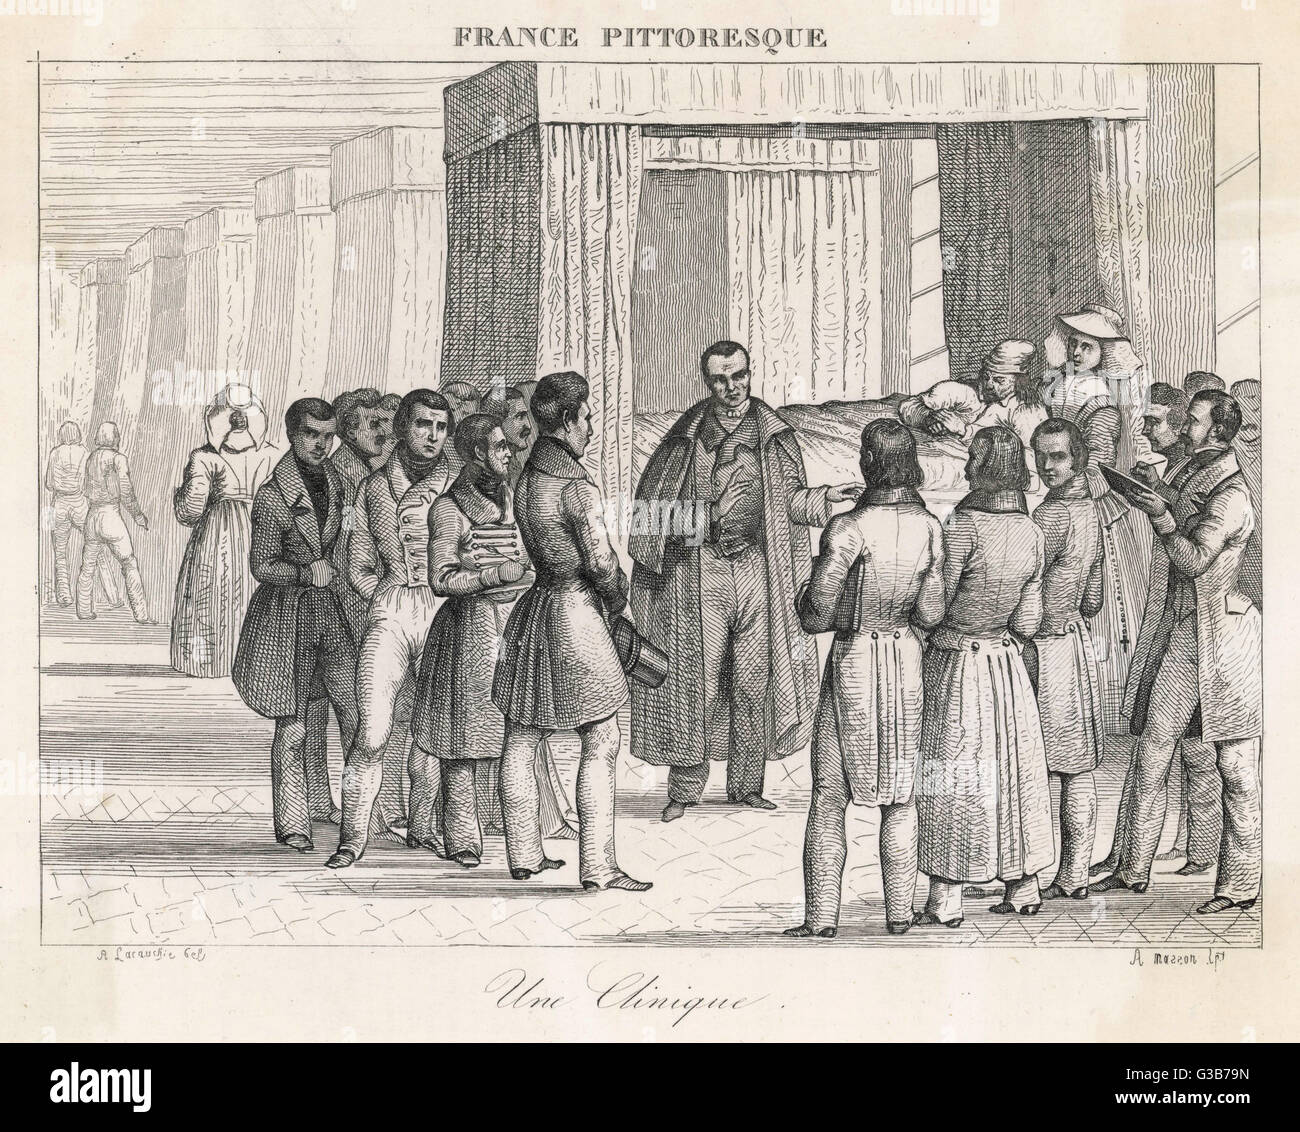 FRANCE PITTORESQUE
A Lacauchie del
A masson
Une Clinique.
alamy
Image ID: G3B79N
www.alamy.com